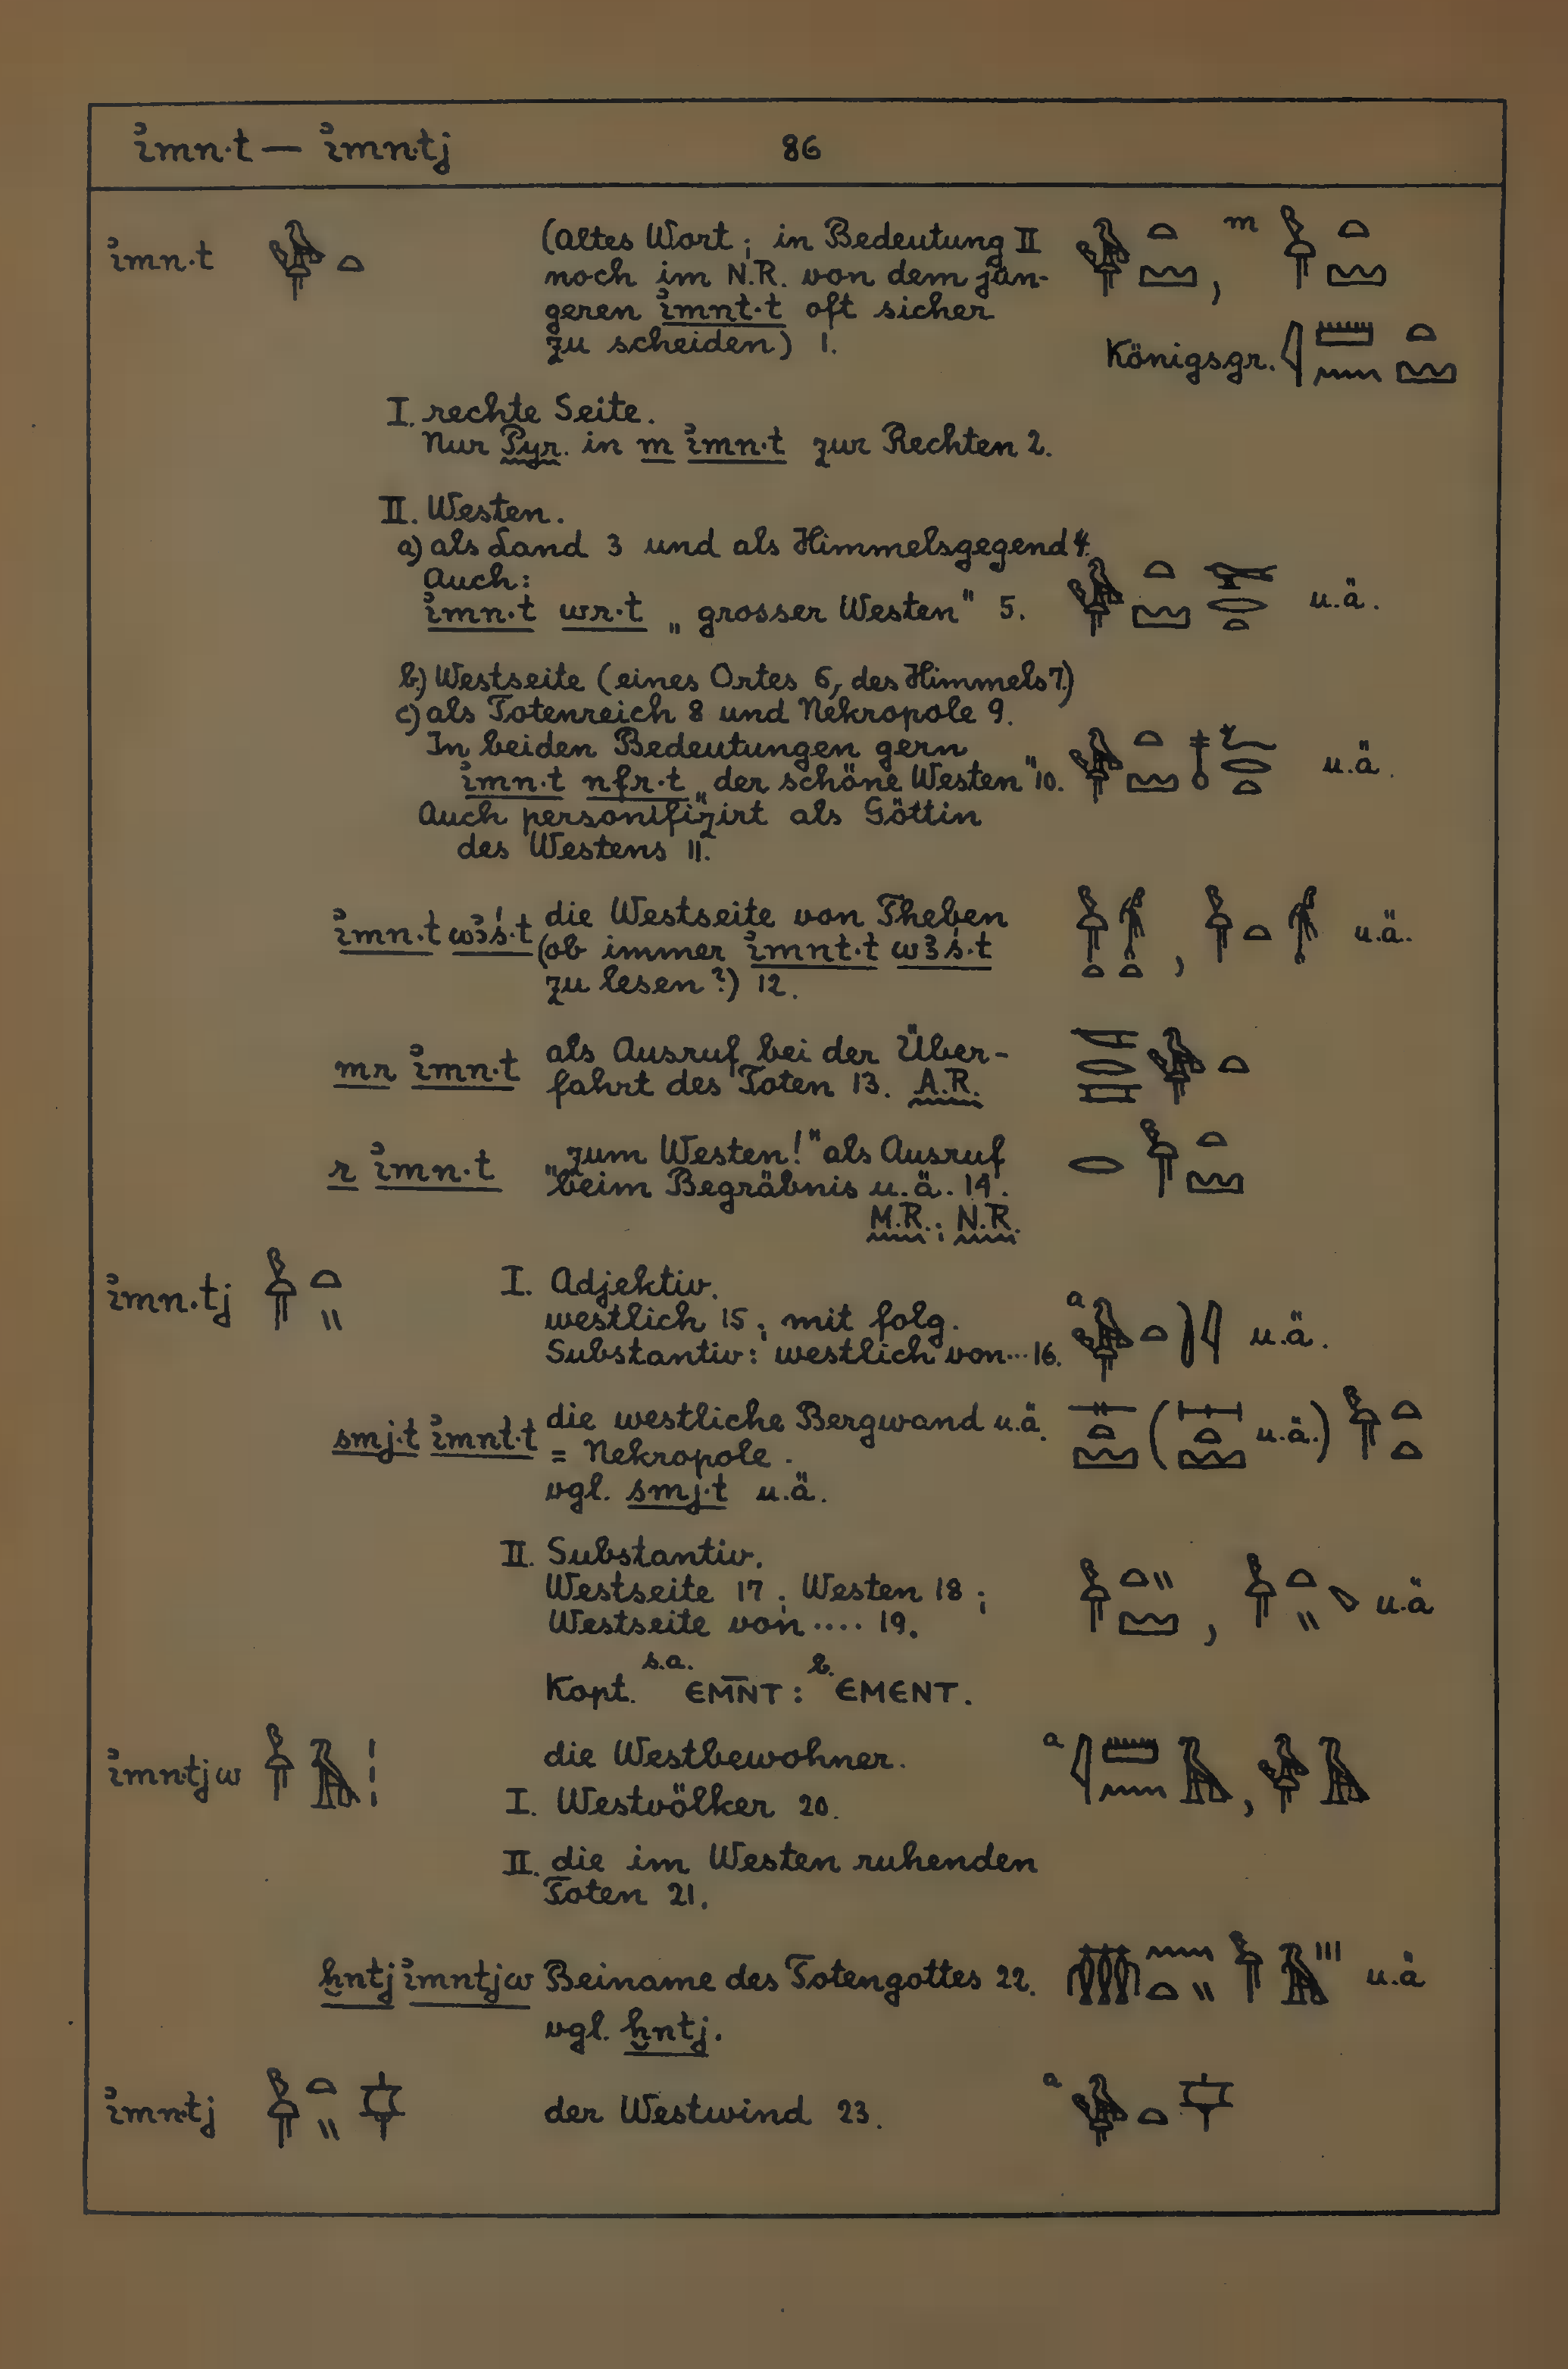 ỉmn·t — ỉmn·tj 86
ỉmn·t (altes Wort; in Bedeutung II
noch im N.R. von dem jün-
geren ỉmnt·t oft sicher
zu scheiden) 1.
m
Königsgr.
I. rechte Seite.
Nur Pyr. in m ỉmn·t zur Rechten 2.
II. Westen.
a) als Land 3 und als Himmelsgegend 4.
Auch:
ỉmn·t wr·t „grosser Westen" 5. u.ä.
b) Westseite (eines Ortes 6, des Himmels 7.)
c) als Totenreich 8 und Nekropole 9.
In beiden Bedeutungen gern
ỉmn·t nfr·t „der schöne Westen" 10. u.ä.
Auch personifizirt als Göttin
des Westens 11.
ỉmn·t wꜣś·t die Westseite von Theben
(ob immer ỉmnt·t wꜣś·t
zu lesen?) 12. u.ä.
mr ỉmn·t als Ausruf bei der Über-
fahrt des Toten 13. A.R.
r ỉmn·t „zum Westen!" als Ausruf
beim Begräbnis u.ä. 14.
M.R.; N.R.
ỉmn·tj I. Adjektiv.
westlich 15; mit folg.
Substantiv: westlich von··· 16. a u.ä.
smj·t ỉmnt·t die westliche Bergwand u.ä.
= Nekropole. ( u.ä.)
vgl. smj·t u.ä.
II. Substantiv.
Westseite 17; Westen 18;
Westseite von···· 19. u.ä
Kopt. s.a. ⲉⲙⲛ̅ⲧ : b. ⲉⲙⲉⲛⲧ.
ỉmntjw die Westbewohner. a
I. Westvölker 20.
II. die im Westen ruhenden
Toten 21.
ḫntj ỉmntjw Beiname des Totengottes 22. u.ä
vgl. ḫntj.
ỉmntj der Westwind 23. a